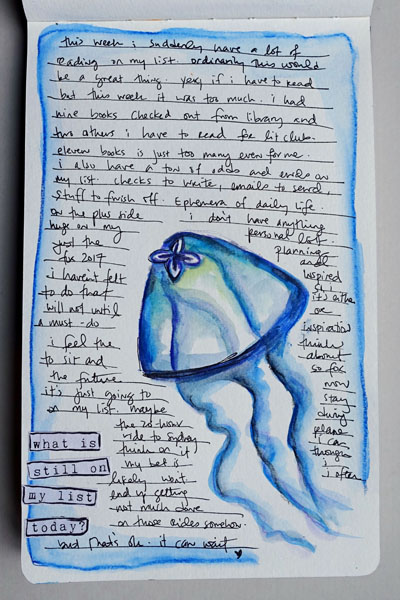 this week i suddenly have a lot of
reading on my list. ordinarily this would
be a great thing. yes, if i have to read
but this week it was too much. i had
nine books checked out from library and
two others i have to read for lit club.
eleven books is just too many even for me.
i also have a ton of odds and ends on
my list. checks to write, emails to send,
stuff to finish off. Ephemera of daily life.
on the plus side i don't have anything
huge on my personal list.
just the planning
for 2017 and
i haven't felt inspired
to do that
will not until
a must-do inspiration
i feel the think
to sit and about
the future. so far
it's just going to now
on my list. maybe stay
the 20-hour during
ride to sydney plane
think on it i can
my bet is though
what is
still on
my list
today?
i likely won't i often
end up getting
not much done
on those rides somehow.
but that's ok. it can wait